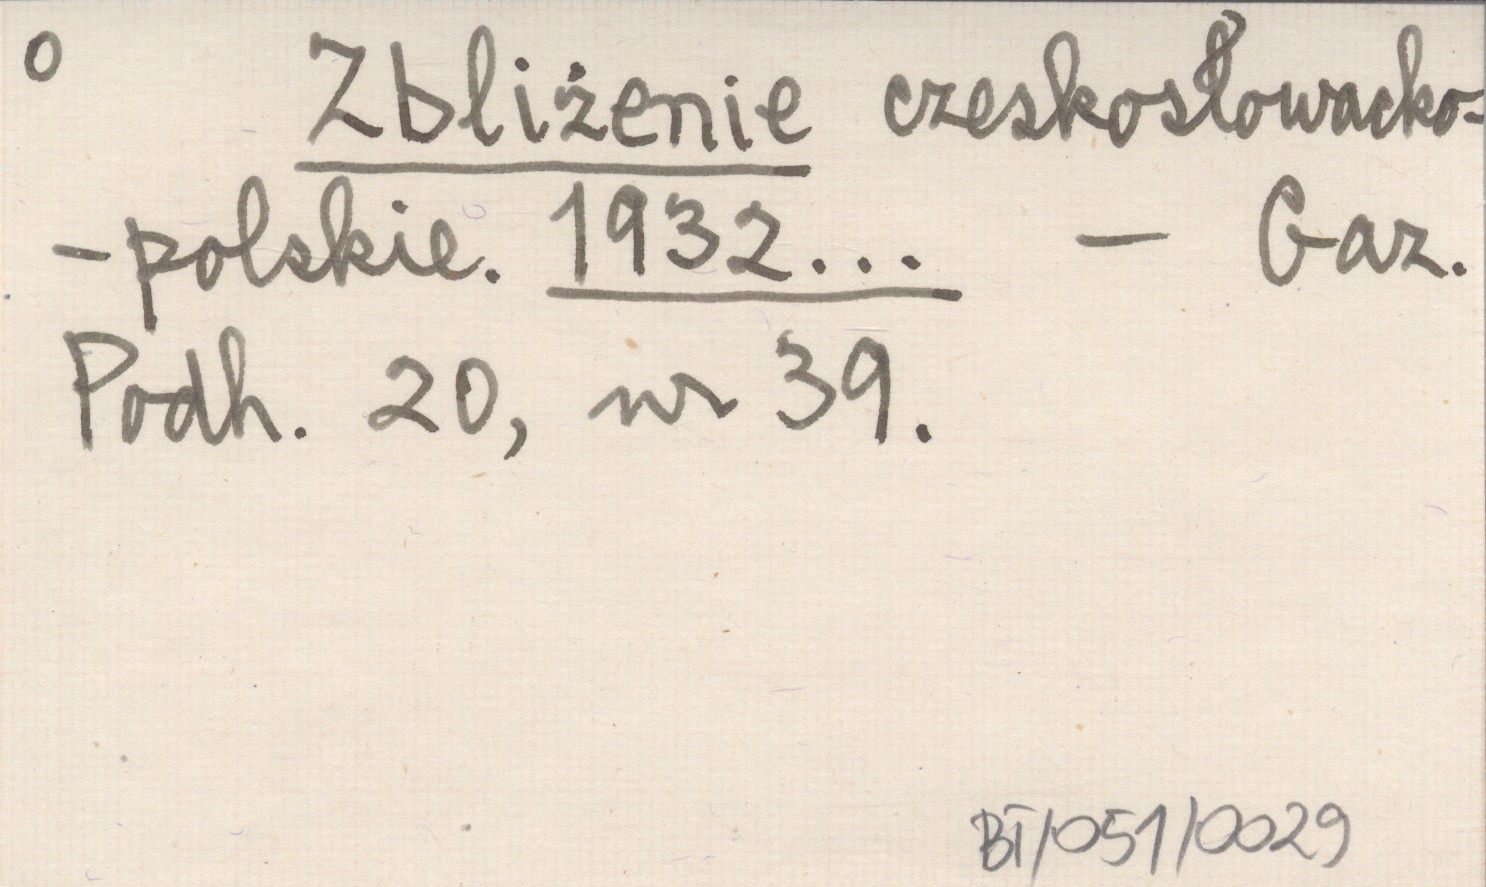 o Zbliżenie czeskosłowacko-
-polskie. 1932... — Gaz.
Podh. 20, nr 39.
BT/051/0029